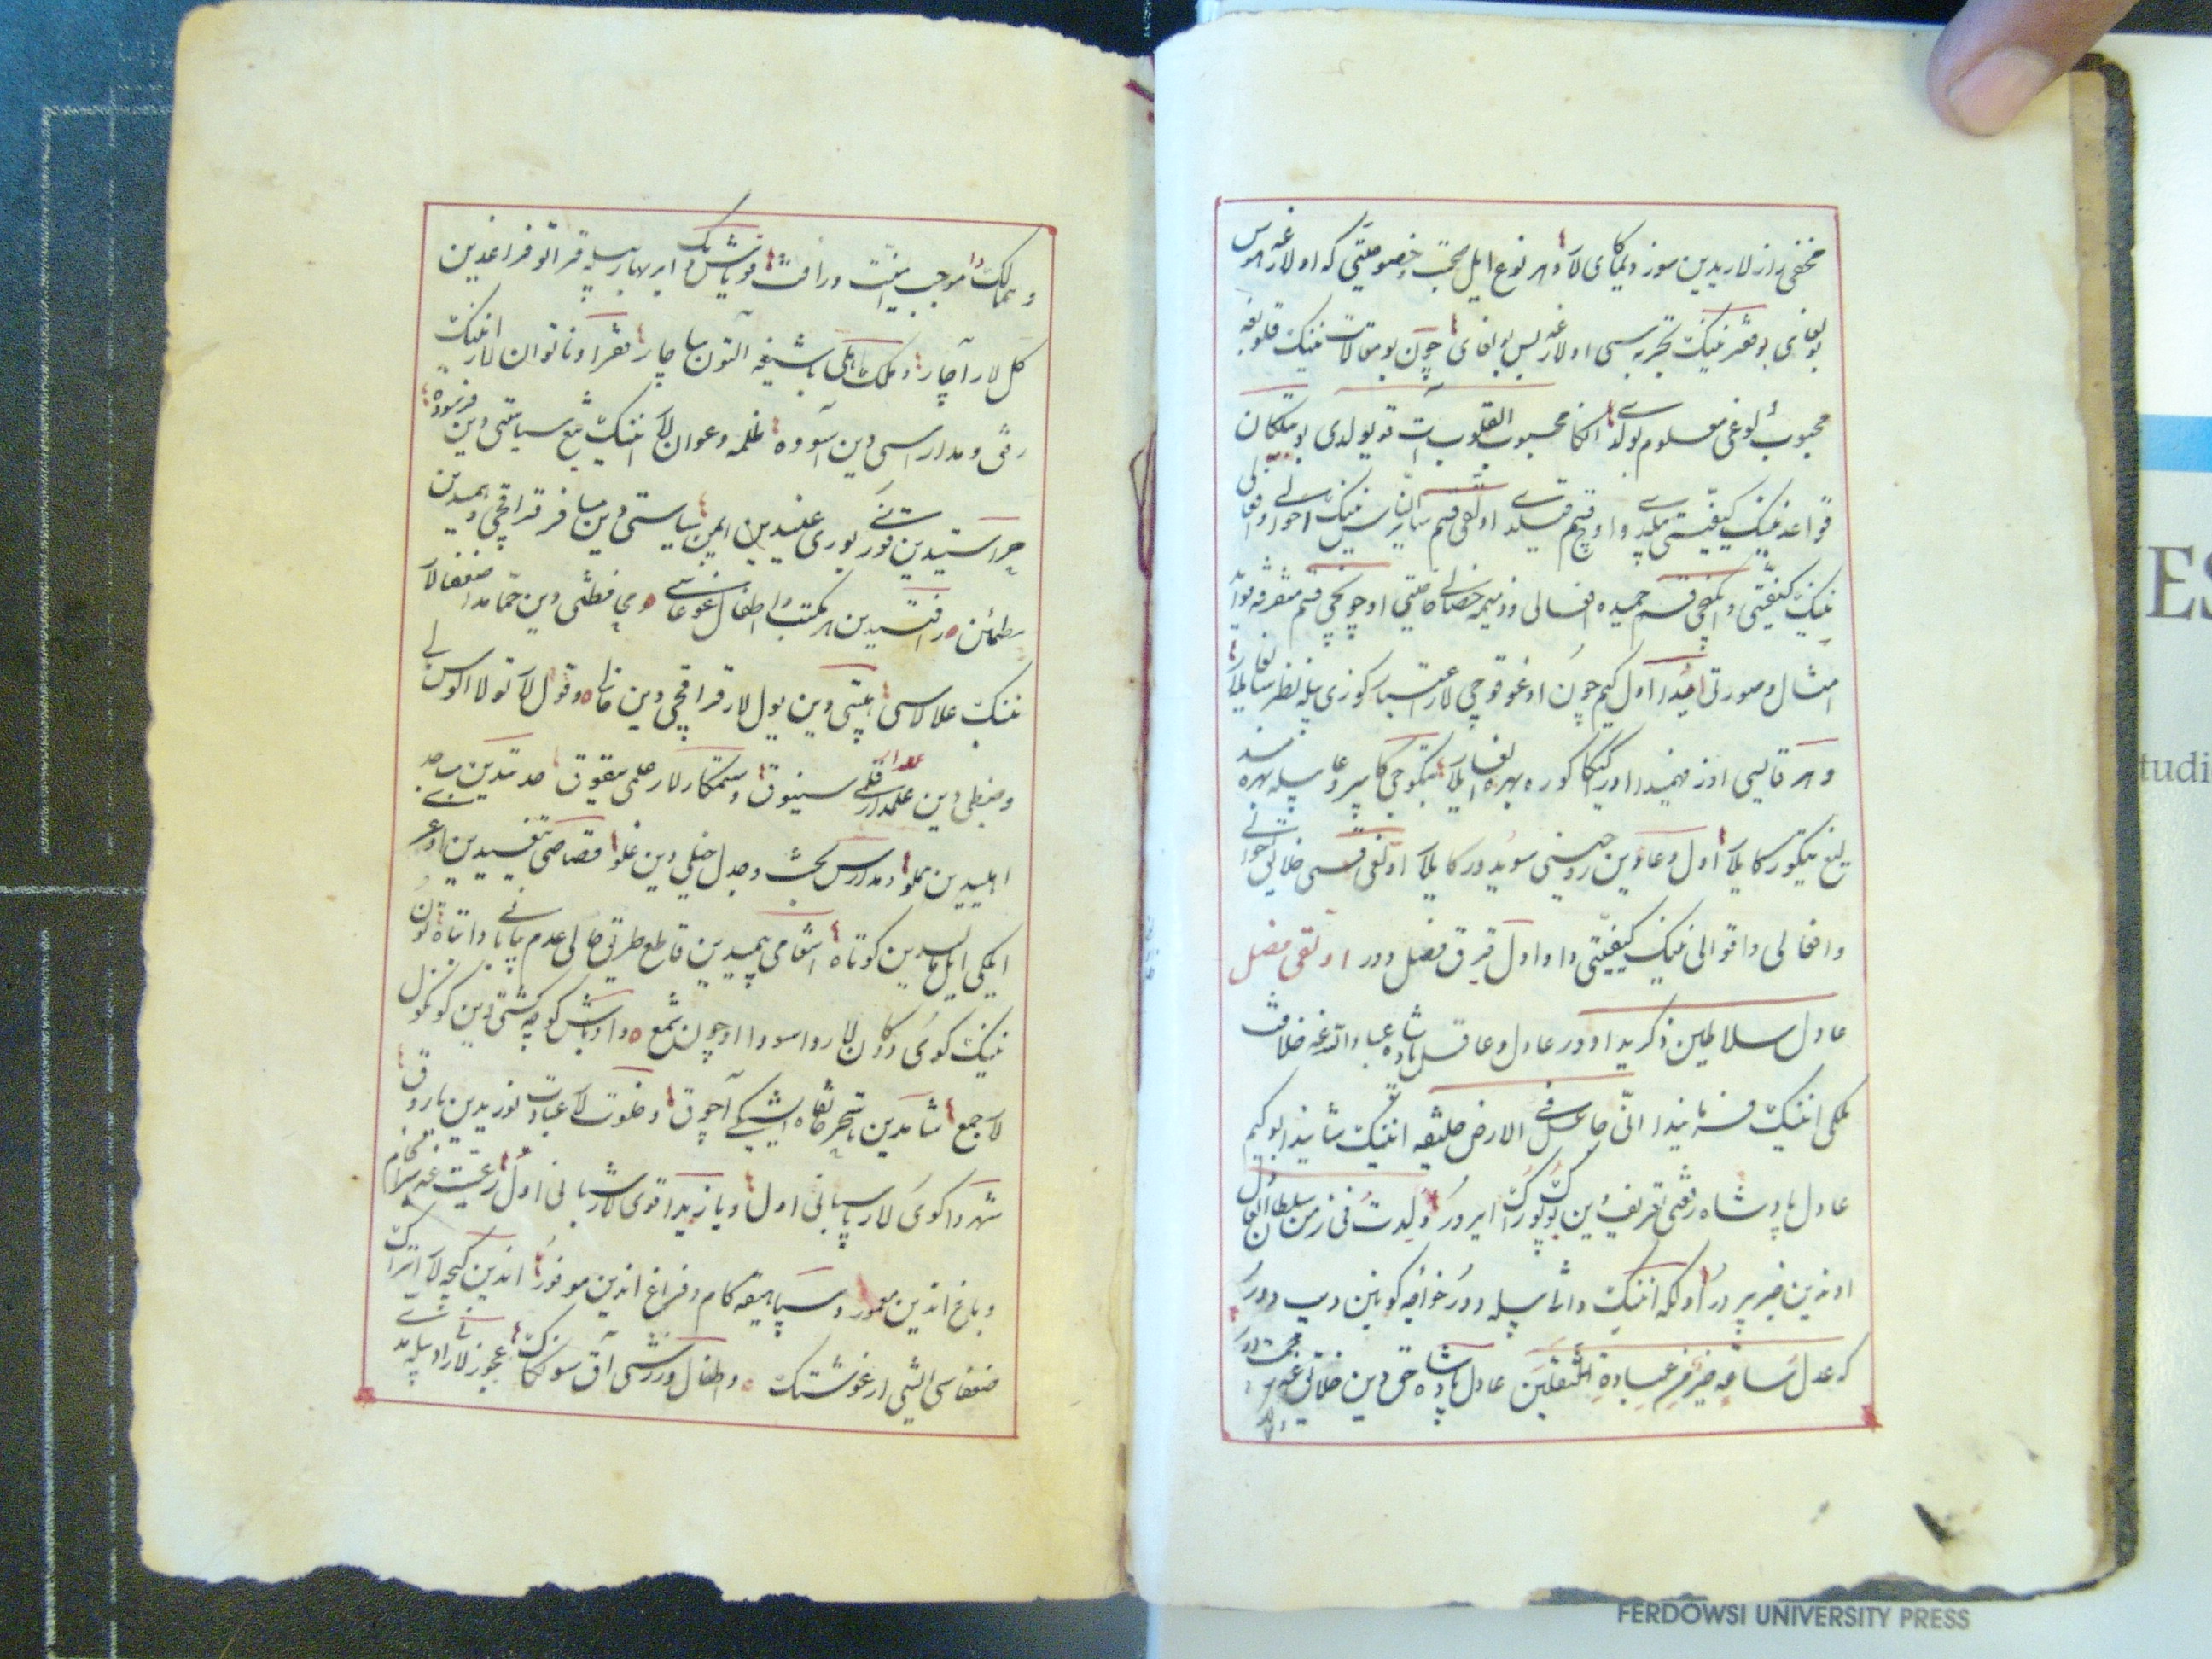 مخفی راز لاریدین سوز دیمکای لار و هر نوع ایل صحبت و خصوصیتی که اولارغه هوس
بولغای بو فقیر نینک تجربه سی اولارغه بس بولغای چون بو مقالات نینک قلوبغه
محبوب لوغی معلوم بولدی انکا محبوب القلوب آت قویولدی بو بیتکان
قواعد نینک کیفیتی و اوچ قسم قیلدی اولقی قسم سایر الناس نینک احوال و افعالی
نینک کیفیتی و ایکینچی قسم حمیده افعال و ذمیمه خصال خاصیتی اوچونچی قسم متفرقه فواید
امثال و صورتی امید اول کیم چون اوغوقوچی لار اعتبار کوزی بیله نظر سالغایلار
و هر قایسی اوز فهمیدا ادراکیکا کوره بهره الغایلار بیتکوچی کا بیر دعا بیله بهره
یتکورکایلار اول دعادین روحینی سویوندورکایلار اولقی قسمی خلایق احوالی
و افعالی و اقوالی نینک کیفیتی دا و اول قیرق فصل دور اولقی فصل
عادل سلاطین ذکریدا دور عادل و عاقل پادشاه عباد الله غه خلافت
ملکی انینک فرمانیدا انّی جاعل فی الارض خلیفه انینک شانیدا بو کیم
عادل پادشاه رفعتی تعریف دین بویوک راک ایرور وُلِدتُ فی زمن سلطان العادل
اوندین خبر بیرور اولکه انینک ذاتی بیله دور خواجه کونین دیب دور
که عدل ساعة خیرٌ من عبادة الثقلین عادل پادشاه حق دین خلایق غه
و ممالک دا موجب امنیت و رافت قویاش بیله ابر بهار بیله قرا توفراغدین
کل لار آچار و ملک اهلی باشیغه آلتون ساچار فقرا و ناتوان لار انینک
رفق و مداراسی دین آسوده ظلمه و عوان لار انینک تیغ سیاستی دین فرسوده
حراستیدین قوی بوری غلبیدین ایمن سیاستی دین مسافر قراقچی وهمیدین
مطمئن رافتیدین هر مکتب دا اطفال غوغاسی و محافظتی دین حمامدا ضعفالار
نینک علالاسی هیبتی دین یول لار قراقچی دین خالی و قول لار تولا الوس
و ضبطی دین عملدار قلمی سینوق و ستمکار لار علمی ییقوق حدتیدین مساجد
اهلیدین مملو و مدارس بحث و جدل خیلی دین غلو قصاصی تیغیسیدین اوغری
ایلکی ایل مالیدین کوتاه انتقامی بیمیدین قاطع طریق حالی عدم بیاباندا تباه تون
نینک کوی و دوکان لار دا سودا اوچون شمع و اوباش کوچه کشتی دین کونکول
لار جمع شامدین تا سحر خانقاه ایشیکی آچوق و خلوت لار عبادت نوریدین یاروق
شهر دا کوی لار پاسبانی اول و یازیدا قوی لار شبانی اول رعیت غه سرانجام
و باغ اندین معمور و سپاهیغه کام و فراغ اندین موفور اندین کیچه لار
ضعفا سی ایشی ارغوشتک و اطفال ورزشی آق سونکاک عجوز لار
FERDOWSI UNIVERSITY PRESS